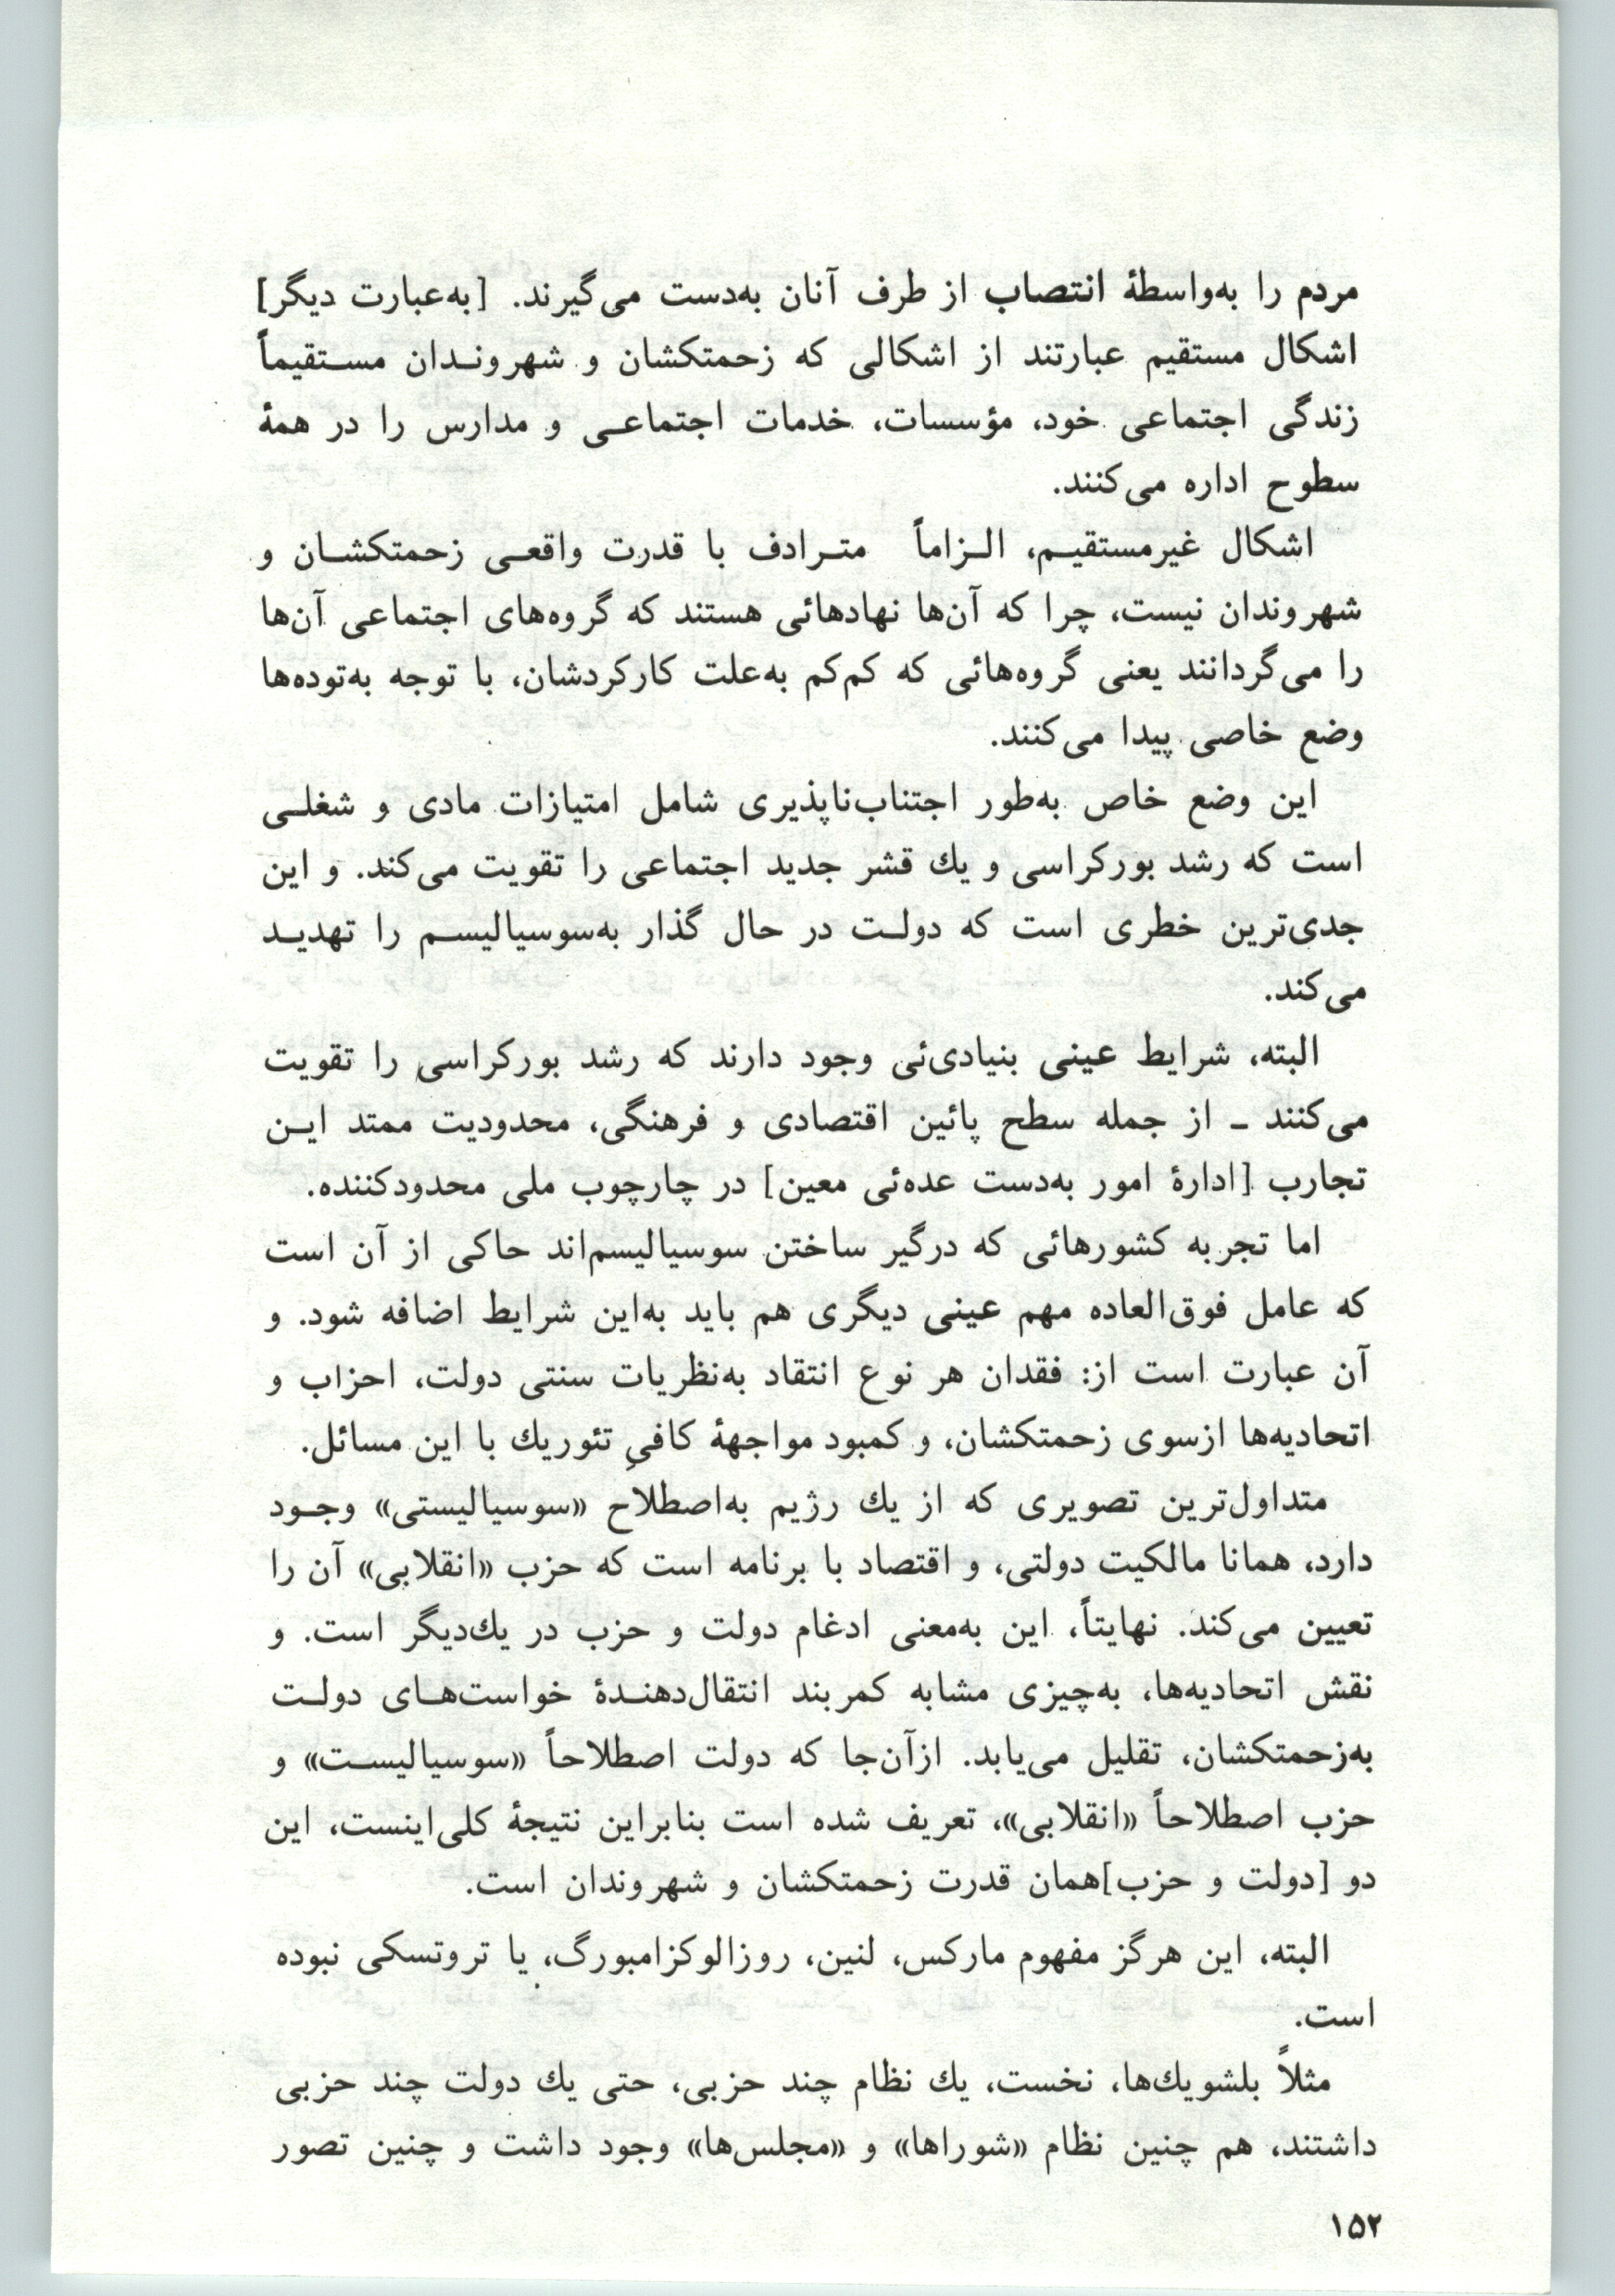 مردم را به‌واسطهٔ انتصاب از طرف آنان به‌دست می‌گیرند. [به‌عبارت دیگر]
اشکال مستقیم عبارتند از اشکالی که زحمتکشان و شهروندان مستقیماً
زندگی اجتماعی خود، مؤسسات، خدمات اجتماعی و مدارس را در همهٔ
سطوح اداره می‌کنند.
اشکال غیرمستقیم، الزاماً مترادف با قدرت واقعی زحمتکشان و
شهروندان نیست، چرا که آن‌ها نهادهائی هستند که گروه‌های اجتماعی آن‌ها
را می‌گردانند یعنی گروه‌هائی که کم‌کم به‌علت کارکردشان، با توجه به‌توده‌ها
وضع خاصی پیدا می‌کنند.
این وضع خاص به‌طور اجتناب‌ناپذیری شامل امتیازات مادی و شغلی
است که رشد بورکراسی و یك قشر جدید اجتماعی را تقویت می‌کند. و این
جدی‌ترین خطری است که دولت در حال گذار به‌سوسیالیسم را تهدید
می‌کند.
البته، شرایط عینی بنیادی‌ئی وجود دارند که رشد بورکراسی را تقویت
می‌کنند ـ از جمله سطح پائین اقتصادی و فرهنگی، محدودیت ممتد این
تجارب [ادارهٔ امور به‌دست عده‌ئی معین] در چارچوب ملی محدودکننده.
اما تجربه کشورهائی که درگیر ساختن سوسیالیسم‌اند حاکی از آن است
که عامل فوق‌العاده مهم عینی دیگری هم باید به‌این شرایط اضافه شود. و
آن عبارت است از: فقدان هر نوع انتقاد به‌نظریات سنتی دولت، احزاب و
اتحادیه‌ها ازسوی زحمتکشان، و کمبود مواجههٔ کافیِ تئوریك با این مسائل.
متداول‌ترین تصویری که از یك رژیم به‌اصطلاح «سوسیالیستی» وجود
دارد، همانا مالکیت دولتی، و اقتصاد با برنامه است که حزب «انقلابی» آن را
تعیین می‌کند. نهایتاً، این به‌معنی ادغام دولت و حزب در یك‌دیگر است. و
نقش اتحادیه‌ها، به‌چیزی مشابه کمربند انتقال‌دهندهٔ خواست‌های دولت
به‌زحمتکشان، تقلیل می‌یابد. ازآن‌جا که دولت اصطلاحاً «سوسیالیست» و
حزب اصطلاحاً «انقلابی»، تعریف شده است بنابراین نتیجهٔ کلی‌اینست، این
دو [دولت و حزب]همان قدرت زحمتکشان و شهروندان است.
البته، این هرگز مفهوم مارکس، لنین، روزالوکزامبورگ، یا تروتسکی نبوده
است.
مثلاً بلشویك‌ها، نخست، یك نظام چند حزبی، حتی یك دولت چند حزبی
داشتند، هم چنین نظام «شوراها» و «مجلس‌ها» وجود داشت و چنین تصور
۱۵۲